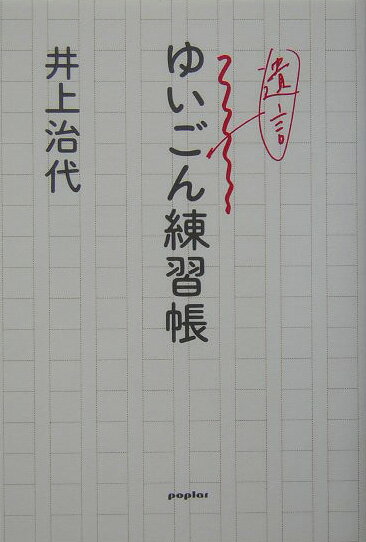 遺言
ゆいごん練習帳
井上治代
poplar